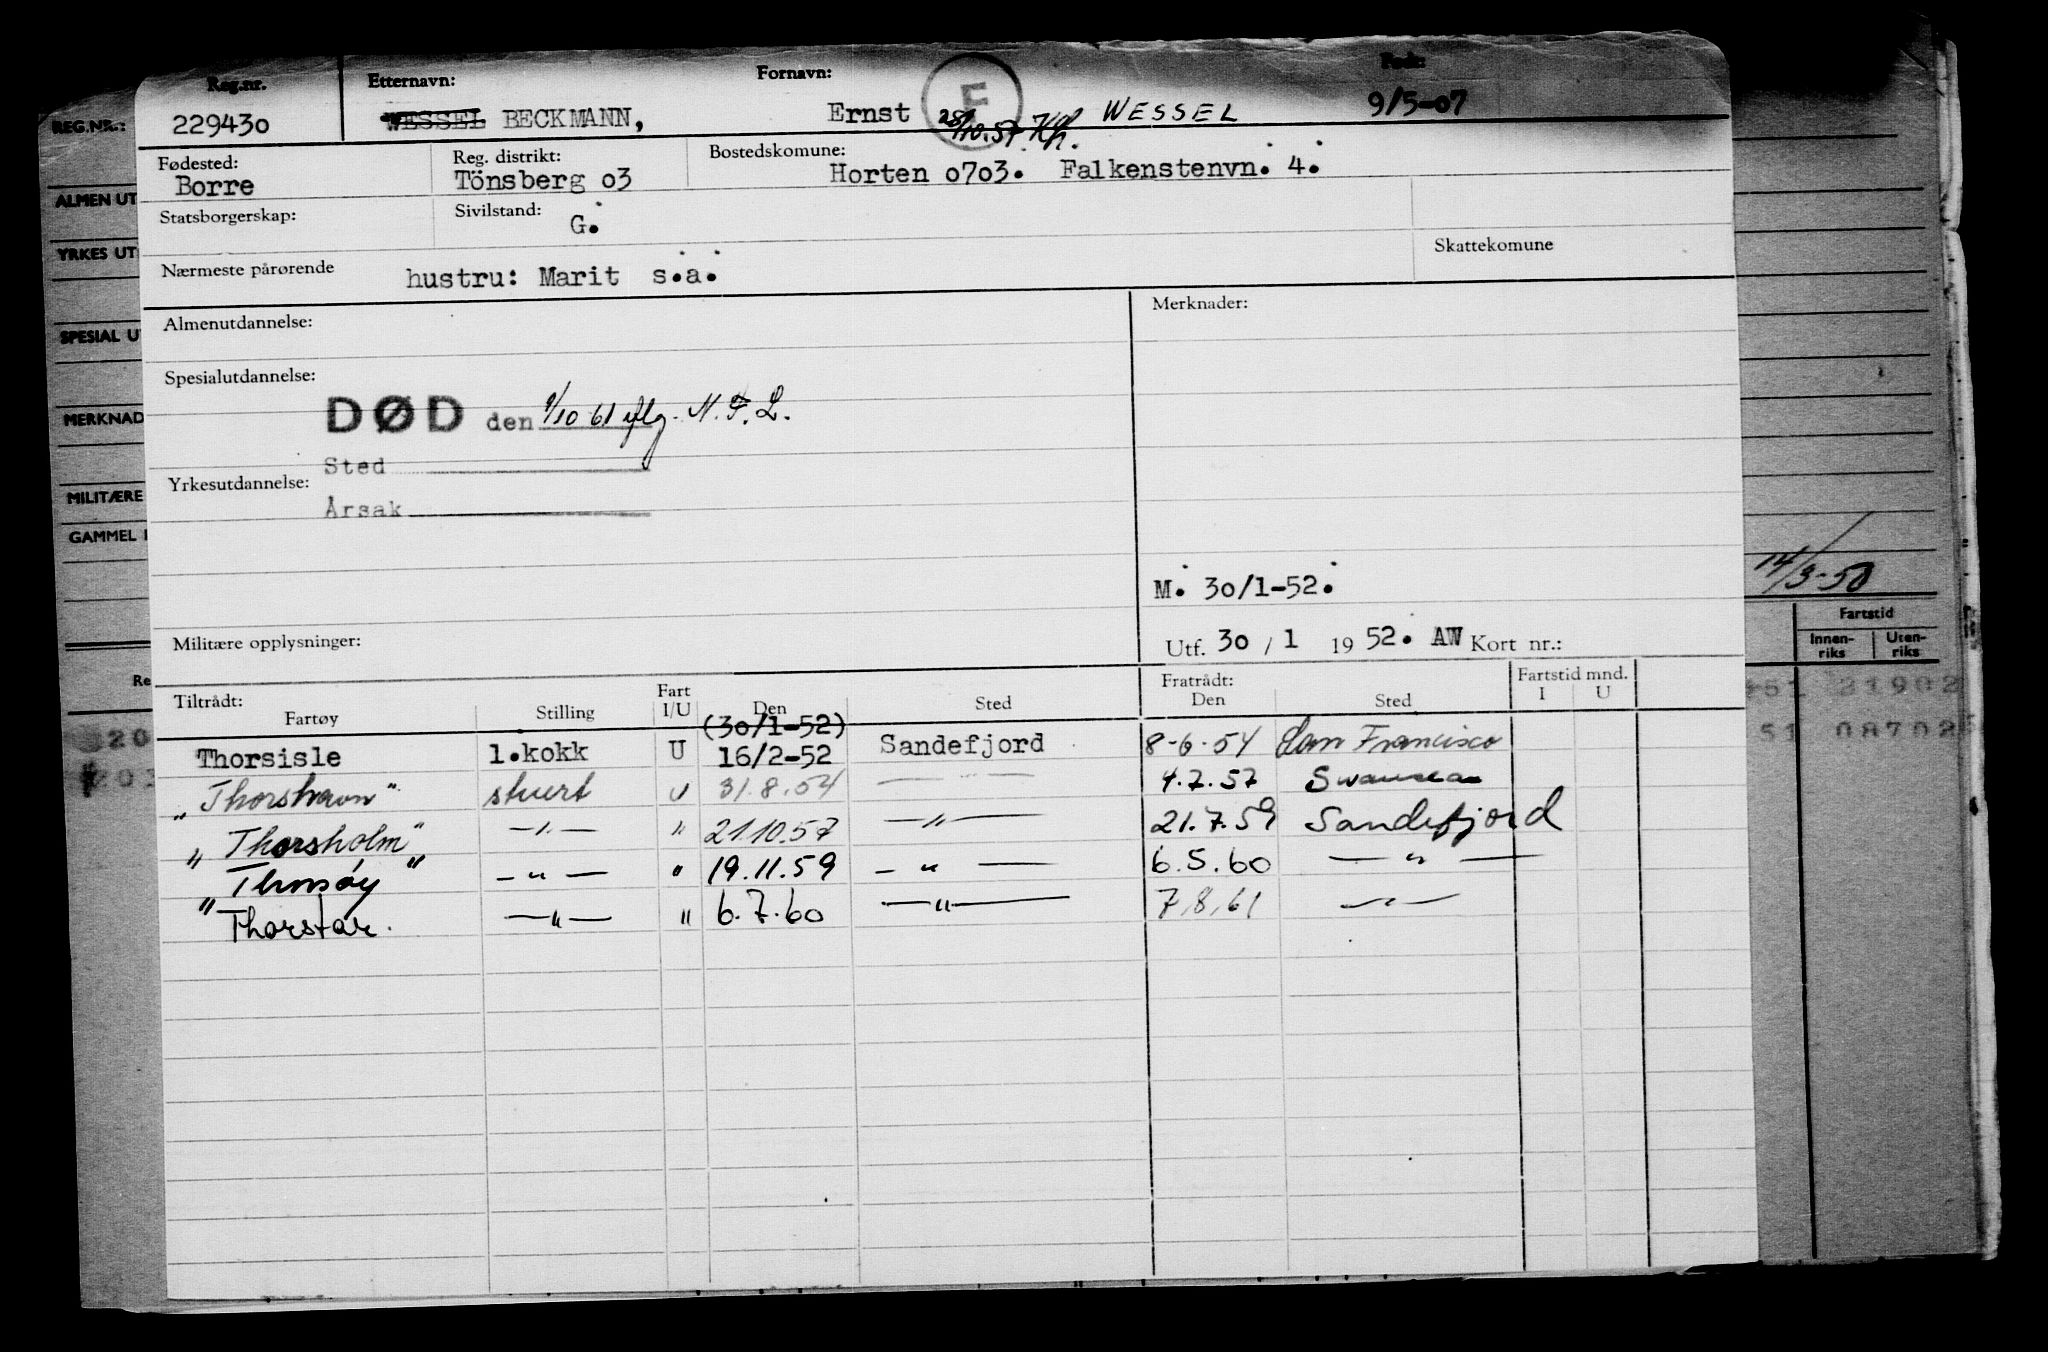 Reg.nr. Etternavn: Fornavn: Født:
229430 WESSEL BECKMANN, Ernst F WESSEL 9/5-07
28/10.57 Kh.
Fødested: Reg. distrikt: Bostedskomune:
Borre Tönsberg 03 Horten 0703. Falkenstenvn. 4.
Statsborgerskap: Sivilstand:
G.
Skattekomune
Nærmeste pårørende hustru: Marit s.a.
Almenutdannelse: Merknader:
Spesialutdannelse:
DØD den 1/10 61 iflg. N.F.L.
Sted
Yrkesutdannelse:
Årsak
M. 30/1-52.
Militære opplysninger: Utf. 30 / 1 19 52. AW Kort nr.:
Tiltrådt: Fart Fratrådt: Fartstid mnd.
Fartøy Stilling I/U Den Sted Den Sted I U
(30/1-52)
Thorsisle 1.kokk U 16/2-52 Sandefjord 8-6-54 San Francisco
"Thorshavn" stuert U 31.8.54 — 4.7.57 Swansea
"Thorsholm" —"— " 21.10.57 —"— 21.7.59 Sandefjord
"Thorsøy" —"— " 19.11.59 —"— 6.5.60 —"—
"Thorstar. —"— " 6.7.60 —"— 7.8.61 —"—
REG.NR.:
ALMEN UT
YRKES UT
SPESIAL U
MERKNAD
MILITÆRE
GAMMEL
14/3-58
Fartstid
Innen-riks Uten-riks
Re
51 21902
51 08702
20
203